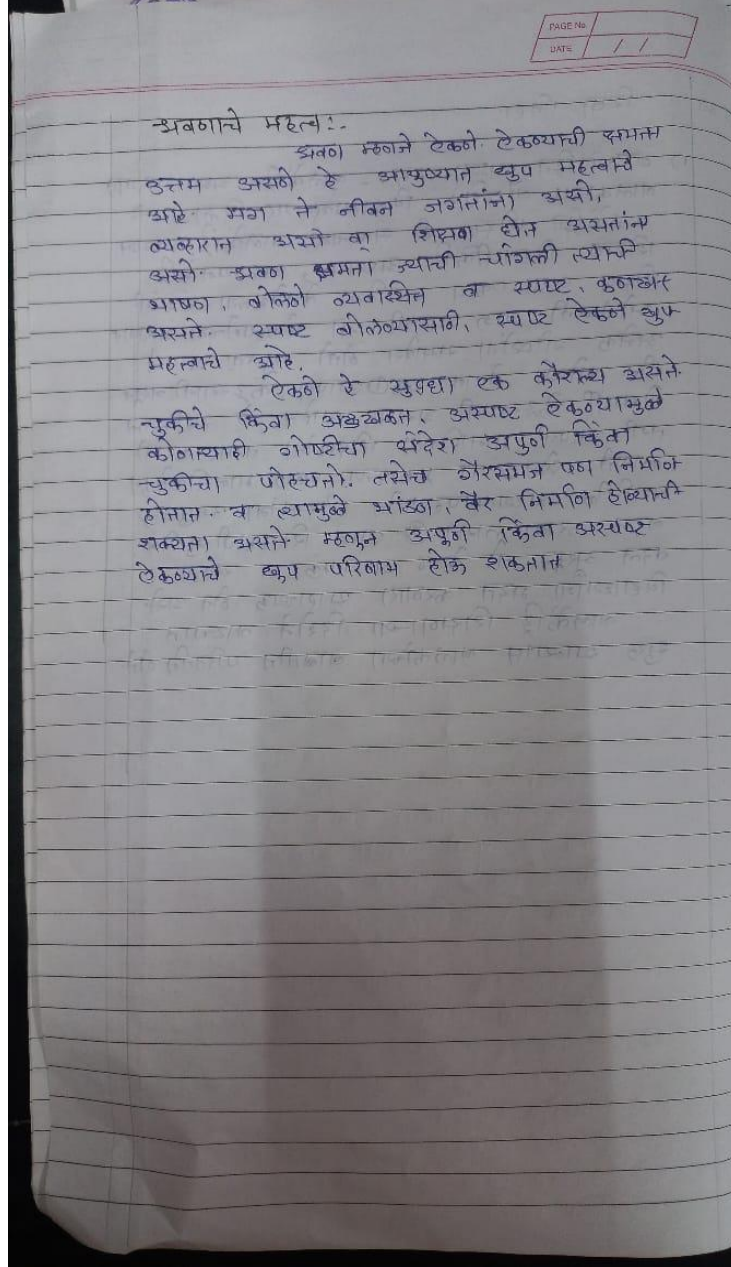 PAGE No.
DATE / /
श्रवणाचे महत्व :-
श्रवण म्हणजे ऐकणे. ऐकण्याची क्षमता
उत्तम असणे हे आयुष्यात खुप महत्वाचे
आहे. मग ते जीवन जगतांना असो,
व्यवहारात असो वा शिक्षण घेत असतांना
असो. श्रवण क्षमता ज्याची चांगली त्याची
भाषण, बोलणे व्यवास्थित व स्पष्ट,
असते. स्पष्ट बोलण्यासाठी, स्पष्ट ऐकणे खुप
महत्वाचे आहे.
ऐकणे हे सुध्धा एक कौशल्य असते.
चुकीचे किंवा अस्पष्ट ऐकण्यामुळे
कोणत्याही गोष्टीचा संदेश अपुर्ण किंवा
चुकीचा पोहचतो. तसेच गैरसमज पण निर्माण
होतात. व त्यामुळे भांडण, वैर निर्माण होण्याची
शक्यता असते. म्हणुन अपुर्ण किंवा अस्पष्ट
ऐकण्याचे खुप परिणाम होऊ शकतात